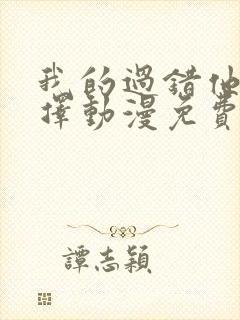 我的過錯他
擇動漫免費
譚志穎